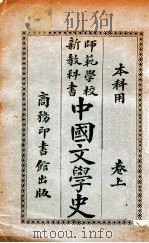 本科用 卷上
師範學校
新教科書
中國文學史
商務印書館出版